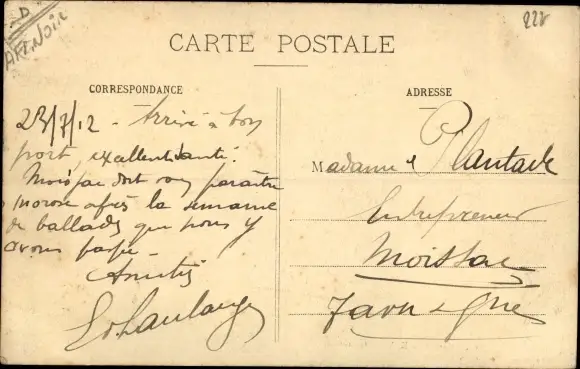 D
AFR. NOIR
222
CARTE POSTALE
CORRESPONDANCE
ADRESSE
23/7/12 - Arrivé à bon
port, excellente santé.
Moissac doit vous paraître
morose après la semaine
de ballades que nous y
avons passé -
Amitiés
Madame Plantade
Entrepreneur
Moissac
Tarn et Gne